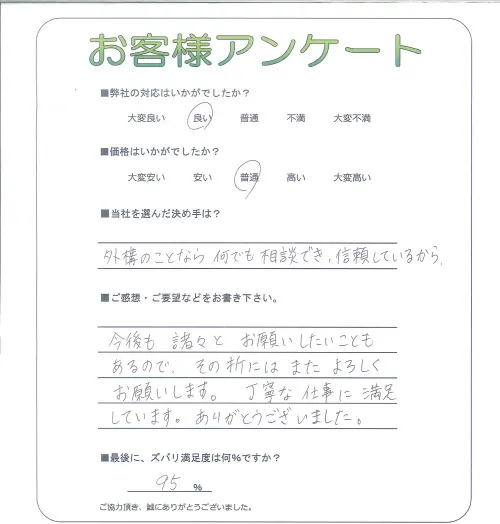 お客様アンケート
■弊社の対応はいかがでしたか？
大変良い 良い 普通 不満 大変不満
■価格はいかがでしたか？
大変安い 安い 普通 高い 大変高い
■当社を選んだ決め手は？
外構のことなら 何でも 相談でき、信頼しているから、
■ご感想・ご要望などをお書き下さい。
今後も 諸々と お願いしたいことも
あるので、その折には また よろしく
お願いします。 丁寧な 仕事に 満足
しています。ありがとうございました。
■最後に、ズバリ満足度は何%ですか？
95 %
ご協力頂き、誠にありがとうございました。